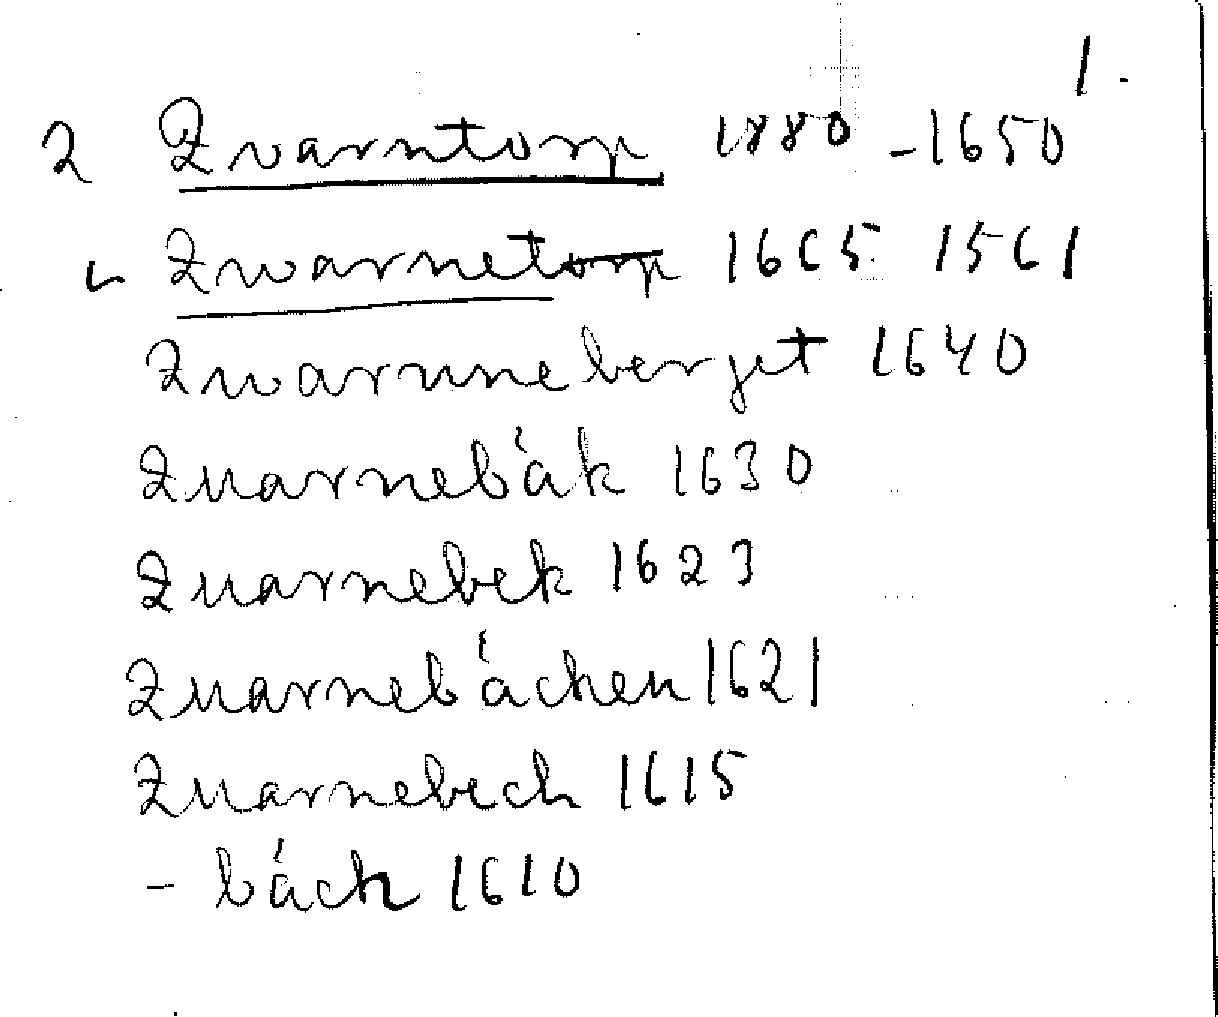 1.
2 Qvarntorp 1880 - 1650
Qwarnetorp 1665 1561
Qwarnneberget 1640
Quarnebák 1630
Quarnebek 1623
Quarnebáchen 1621
Quarnebech 1615
- bách 1610